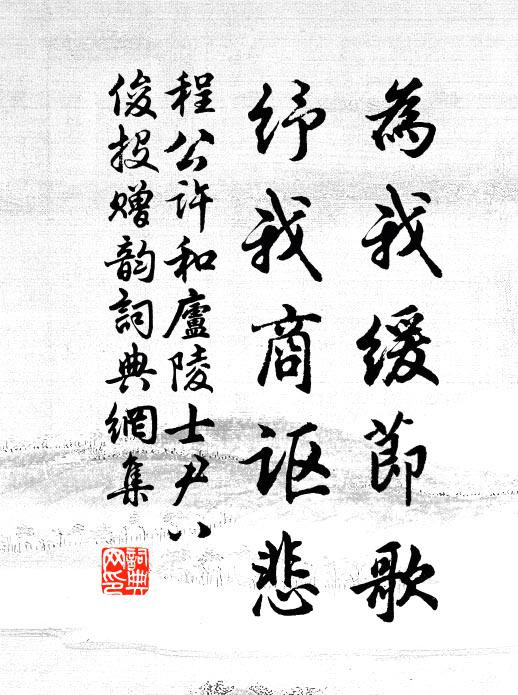 為我緩節歌
紓我商謳悲
程公許和廬陵士尹八
俊投贈韵詞典網集
詞典
网印